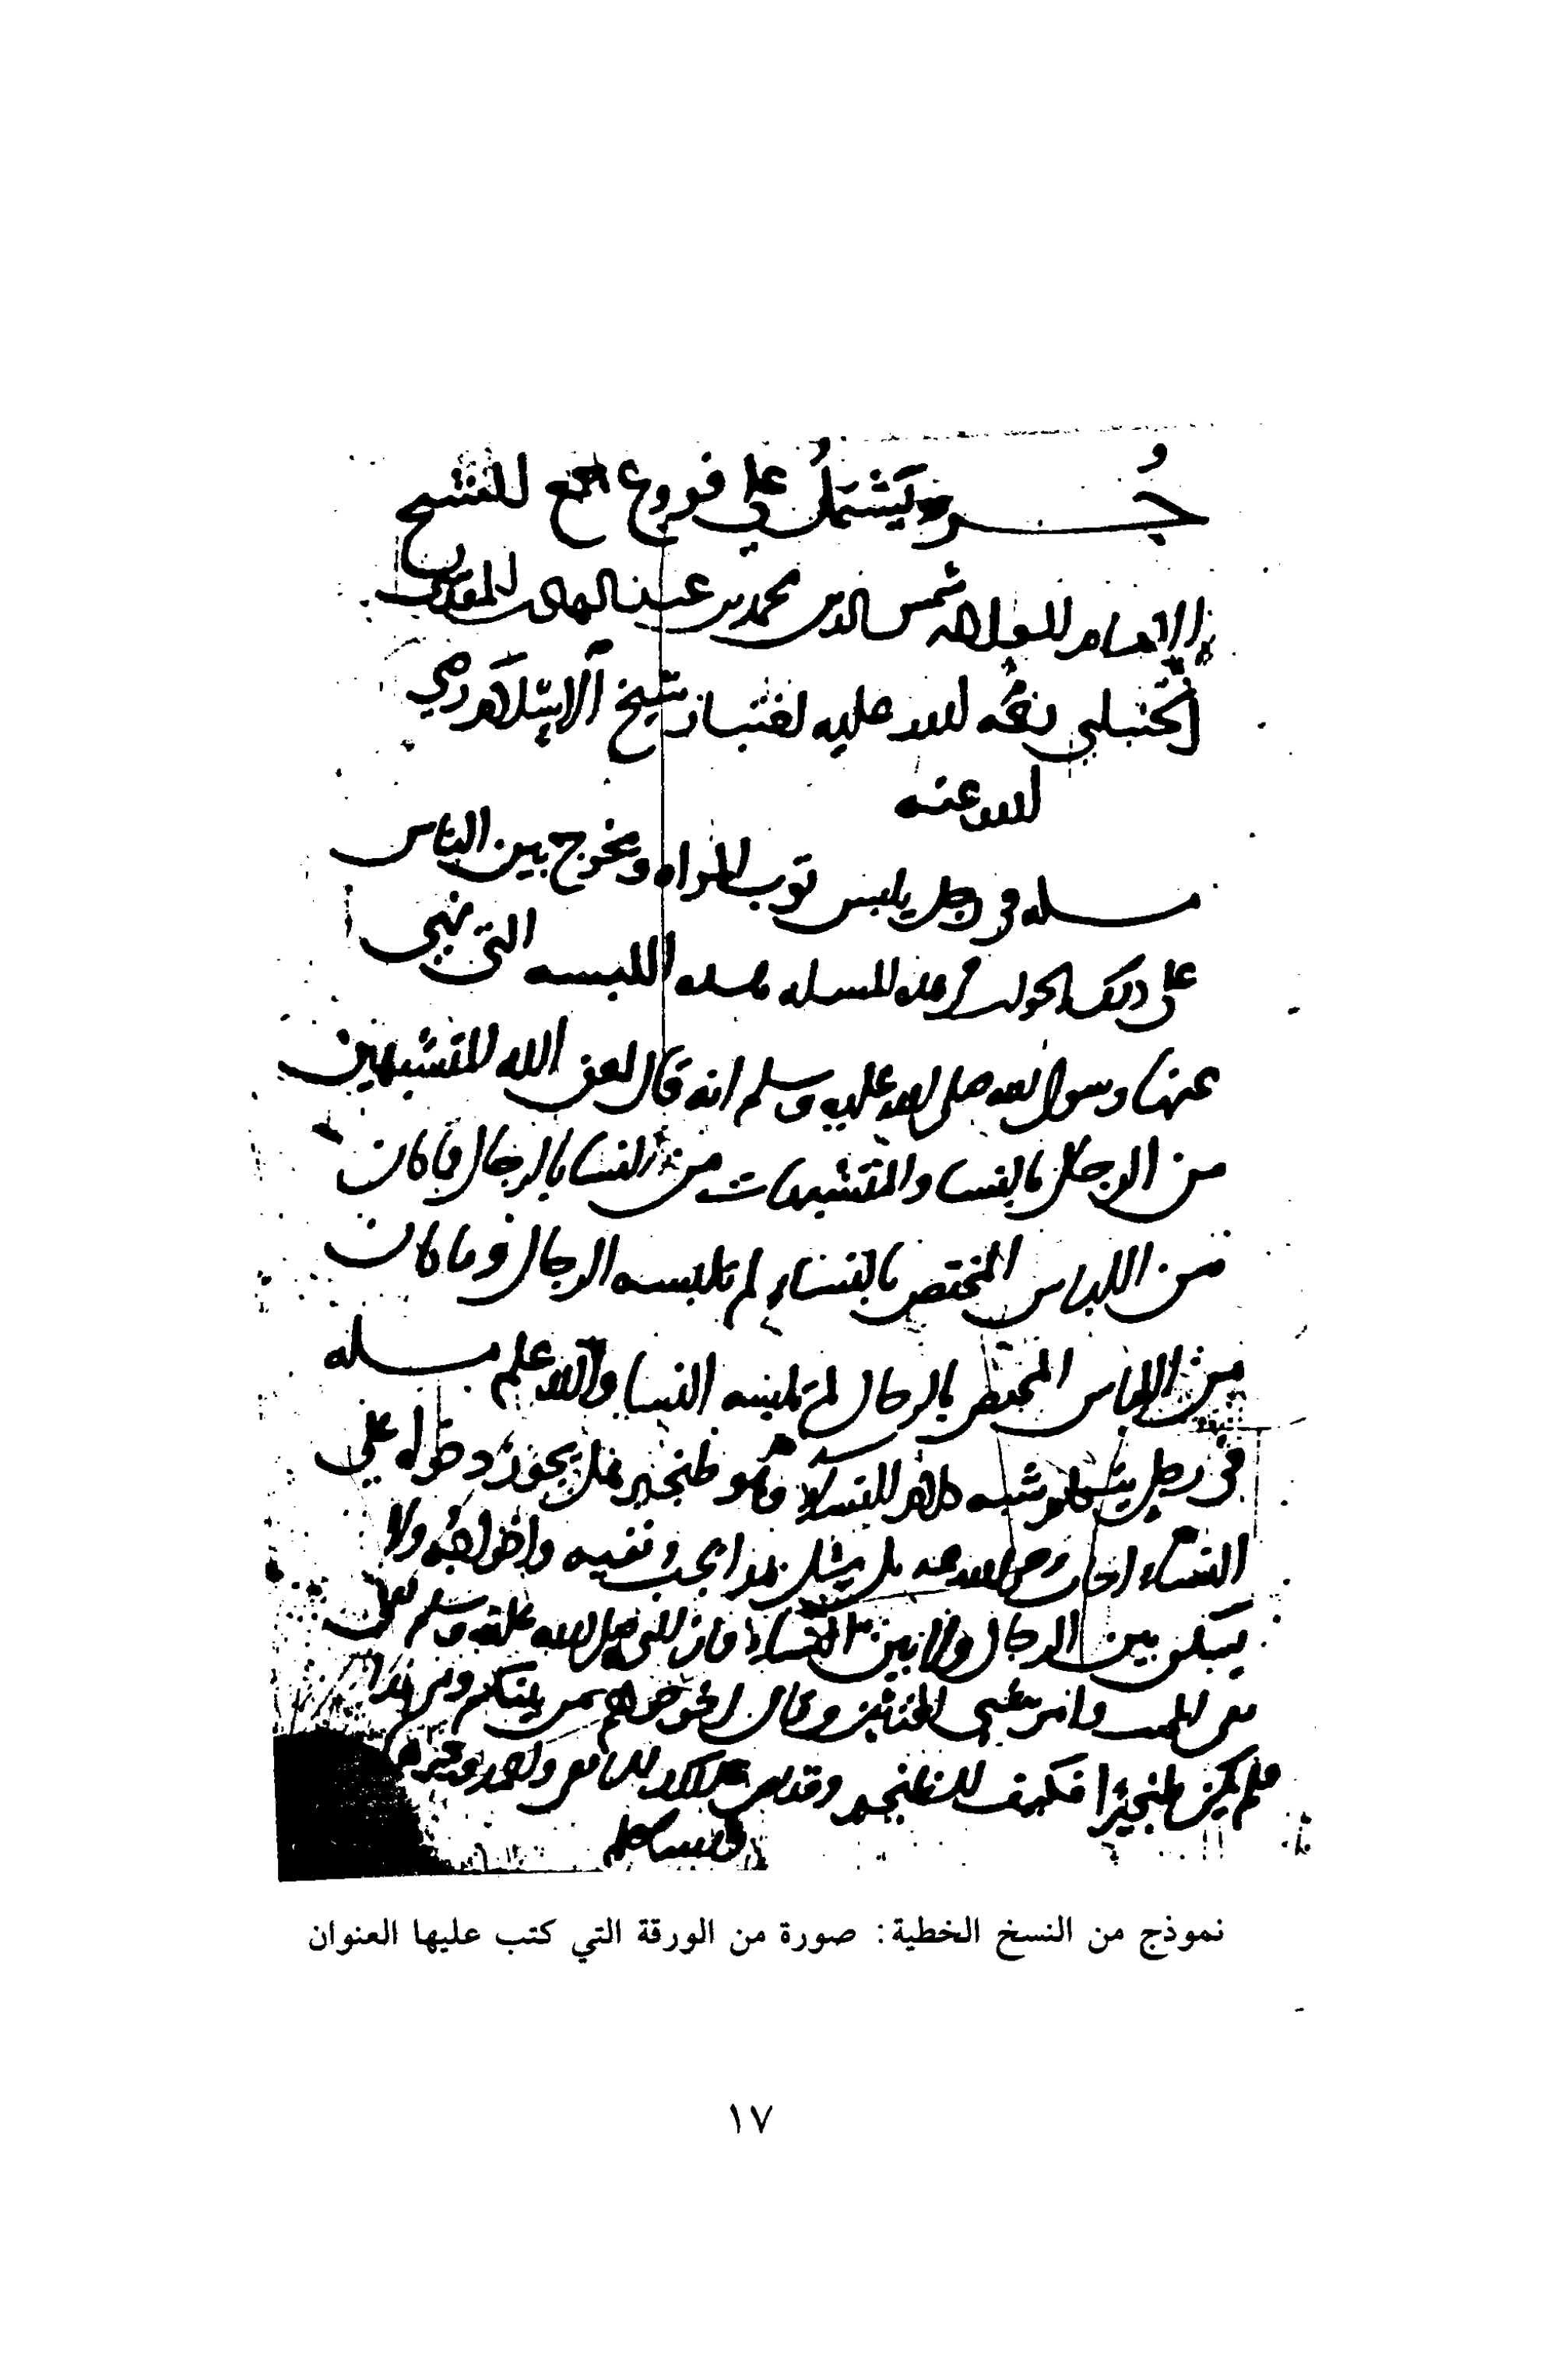 جزو يشتمل على فروع جمع للشيخ
الامام العلامه شمس الدين محمد بن عبد الهادى المقدسي
الحنبلي رحمة الله عليه لفتيا شيخ الاسلام رضي
الله عنه
مسله فى رجل يلبس ثوب المراه ويخرج بين الناس
على ذلك الجواب فى هذه المسله اللبسه التى نهى
عنها رسول الله صلى الله عليه وسلم انه قال لعن الله المتشبهين
من الرجال بالنسا والمتشبهات من النسا بالرجال فما كان
من اللباس المختص بالنساء لم تلبسه الرجال وما كان
من اللباس المختص بالرجال لم تلبسه النسا والله اعلم مسله
فى رجل شبه النسا وهو طنجير فهل يجوز دخوله على
النساء اجاب رضى الله عنه بل مثل هذا يجب نفيه واخراجه ولا
يسكن بين الرجال ولا بين النساء فان النبى صلى الله عليه وسلم نفى
المخنثين وقال اخرجوهم من بيوتكم
فلم يكن طنجيرا فكيف الطنجير وقد نص على
نموذج من النسخ الخطية: صورة من الورقة التي كتب عليها العنوان
١٧